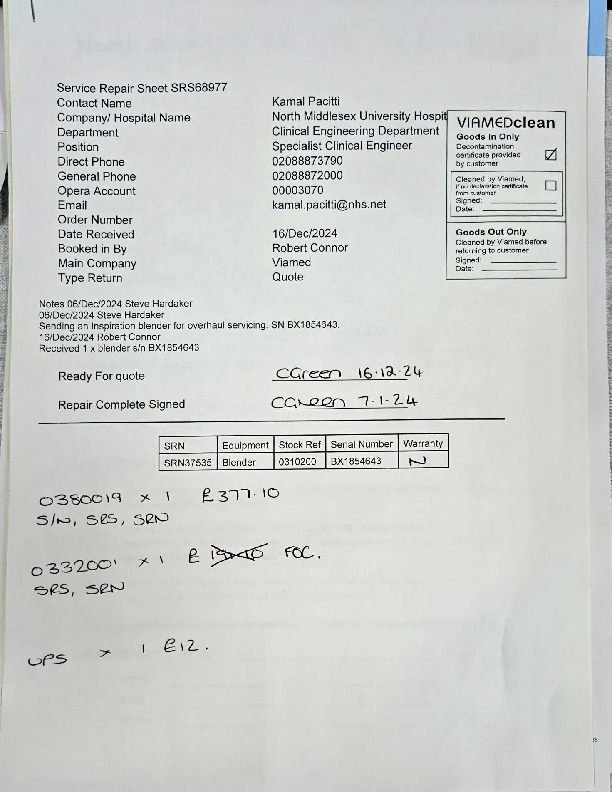 Service Repair Sheet SRS68977
Contact Name Kamal Pacitti
Company/ Hospital Name North Middlesex University Hospit
Department Clinical Engineering Department
Position Specialist Clinical Engineer
Direct Phone 02088873790
General Phone 02088872000
Opera Account 00003070
Email kamal.pacitti@nhs.net
Order Number
Date Received 16/Dec/2024
Booked in By Robert Connor
Main Company Viamed
Type Return Quote
VIAMEDclean
Goods In Only
Decontamination
certificate provided
by customer
Cleaned by Viamed,
if no declaration certificate
from customer
Signed:
Date:
Goods Out Only
Cleaned by Viamed before
returning to customer
Signed:
Date:
Notes 06/Dec/2024 Steve Hardaker
06/Dec/2024 Steve Hardaker
Sending an Inspiration blender for overhaul servicing. SN BX1854643.
16/Dec/2024 Robert Connor
Received 1 x blender s/n BX1854643
Ready For quote CGreen 16.12.24
Repair Complete Signed CGreen 7.1.24
SRN Equipment Stock Ref Serial Number Warranty
SRN37535 Blender 0310200 BX1854643 N
0380019 x 1 £377.10
S/N, SRS, SRN
0332001 x 1 £ FOC.
SRS, SRN
UPS x 1 £12.